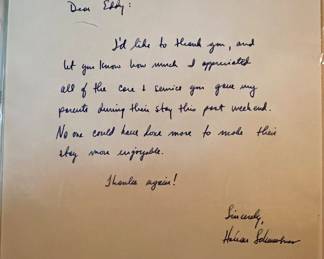 Dear Eddy:
I'd like to thank you, and
let you know how much I appreciated
all of the care & service you gave my
parents during their stay this past weekend.
No one could have done more to make their
stay more enjoyable.
Thanks again!
Sincerely,